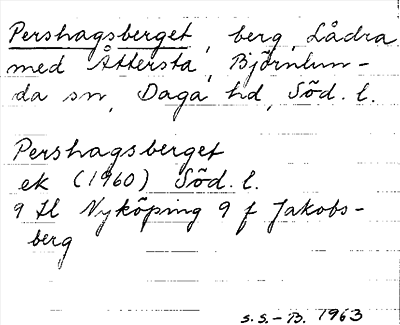 Pershagsberget, berg, Lådra
med Åttersta, Björnlun-
da sn, Daga hd, Söd. l.
Pershagsberget
ek (1960) Söd. l.
9 H Nyköping 9 f Jakobs-
berg
S.S.-B. 1963